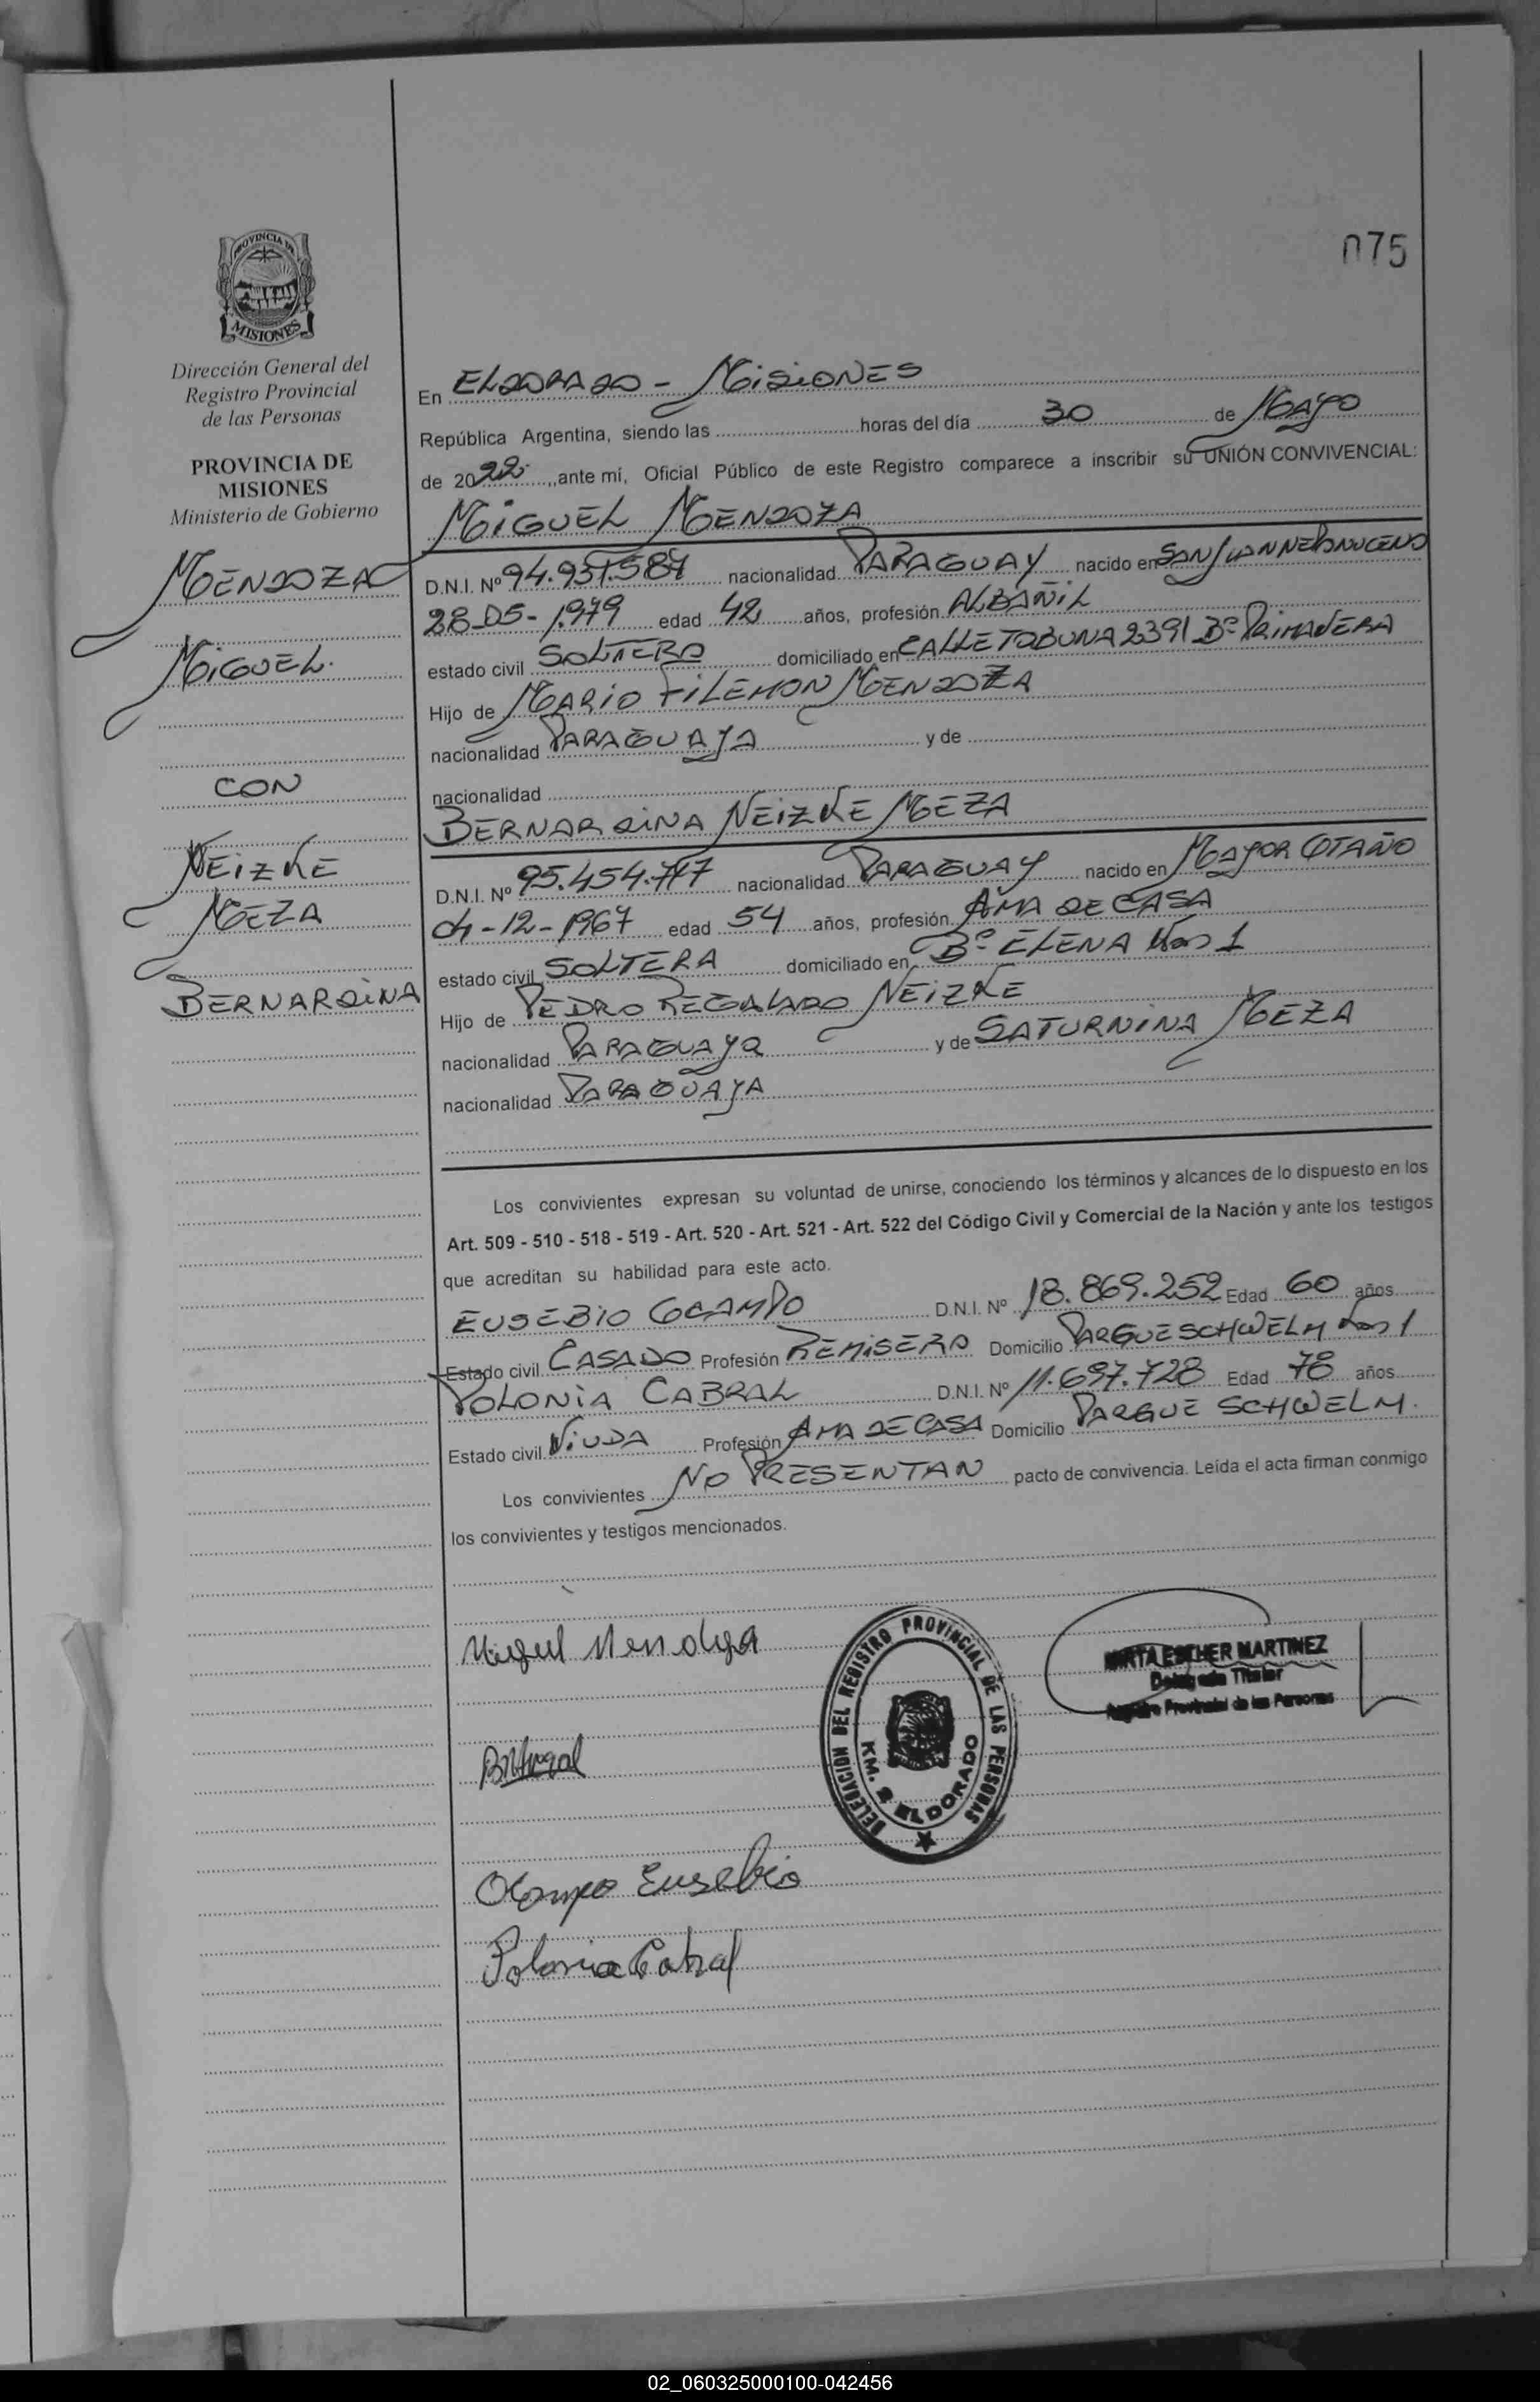 075
PROVINCIA DE
MISIONES
Dirección General del
Registro Provincial
de las Personas
PROVINCIA DE
MISIONES
Ministerio de Gobierno
MENDOZA
MIGUEL.
CON
NEIZKE
MEZA
BERNARDINA
En ELDORADO - MISIONES
República Argentina, siendo las horas del día 30 de MAYO
de 2022 ,,ante mí, Oficial Público de este Registro comparece a inscribir su UNIÓN CONVIVENCIAL:
MIGUEL MENDOZA
D.N.I. Nº 94.937.587 nacionalidad PARAGUAY nacido en SAN JUAN NEPONUCENO
28-05-1979 edad 42 años, profesión ALBAÑIL
estado civil SOLTERO domiciliado en CALLE TOBUNA 2391 Bº PRIMAVERA
Hijo de MARIO FILEMON MENDOZA
nacionalidad PARAGUAYA y de
nacionalidad
BERNARDINA NEIZKE MEZA
D.N.I. Nº 95.454.717 nacionalidad PARAGUAY nacido en MAYOR OTAÑO
04-12-1967 edad 54 años, profesión AMA DE CASA
estado civil SOLTERA domiciliado en Bº ELENA Km 1
Hijo de PEDRO REGALADO NEIZKE
nacionalidad PARAGUAYA y de SATURNINA MEZA
nacionalidad PARAGUAYA
Los convivientes expresan su voluntad de unirse, conociendo los términos y alcances de lo dispuesto en los
Art. 509 - 510 - 518 - 519 - Art. 520 - Art. 521 - Art. 522 del Código Civil y Comercial de la Nación y ante los testigos
que acreditan su habilidad para este acto.
EUSEBIO OCAMPO D.N.I. Nº 18.869.252 Edad 60 años
Estado civil CASADO Profesión REMISERO Domicilio PARQUE SCHWELM Km 1
POLONIA CABRAL D.N.I. Nº 11.697.728 Edad 78 años
Estado civil VIUDA Profesión AMA DE CASA Domicilio PARQUE SCHWELM.
Los convivientes NO PRESENTAN pacto de convivencia. Leída el acta firman conmigo
los convivientes y testigos mencionados.
Miguel Mendoza
DELEGACION DEL REGISTRO PROVINCIAL DE LAS PERSONAS
KM. 2 ELDORADO
MIRTA ESTHER MARTINEZ
Delegada Titular
Registro Provincial de las Personas
Ocampo Eusebio
Polonia Cabral
02_060325000100-042456